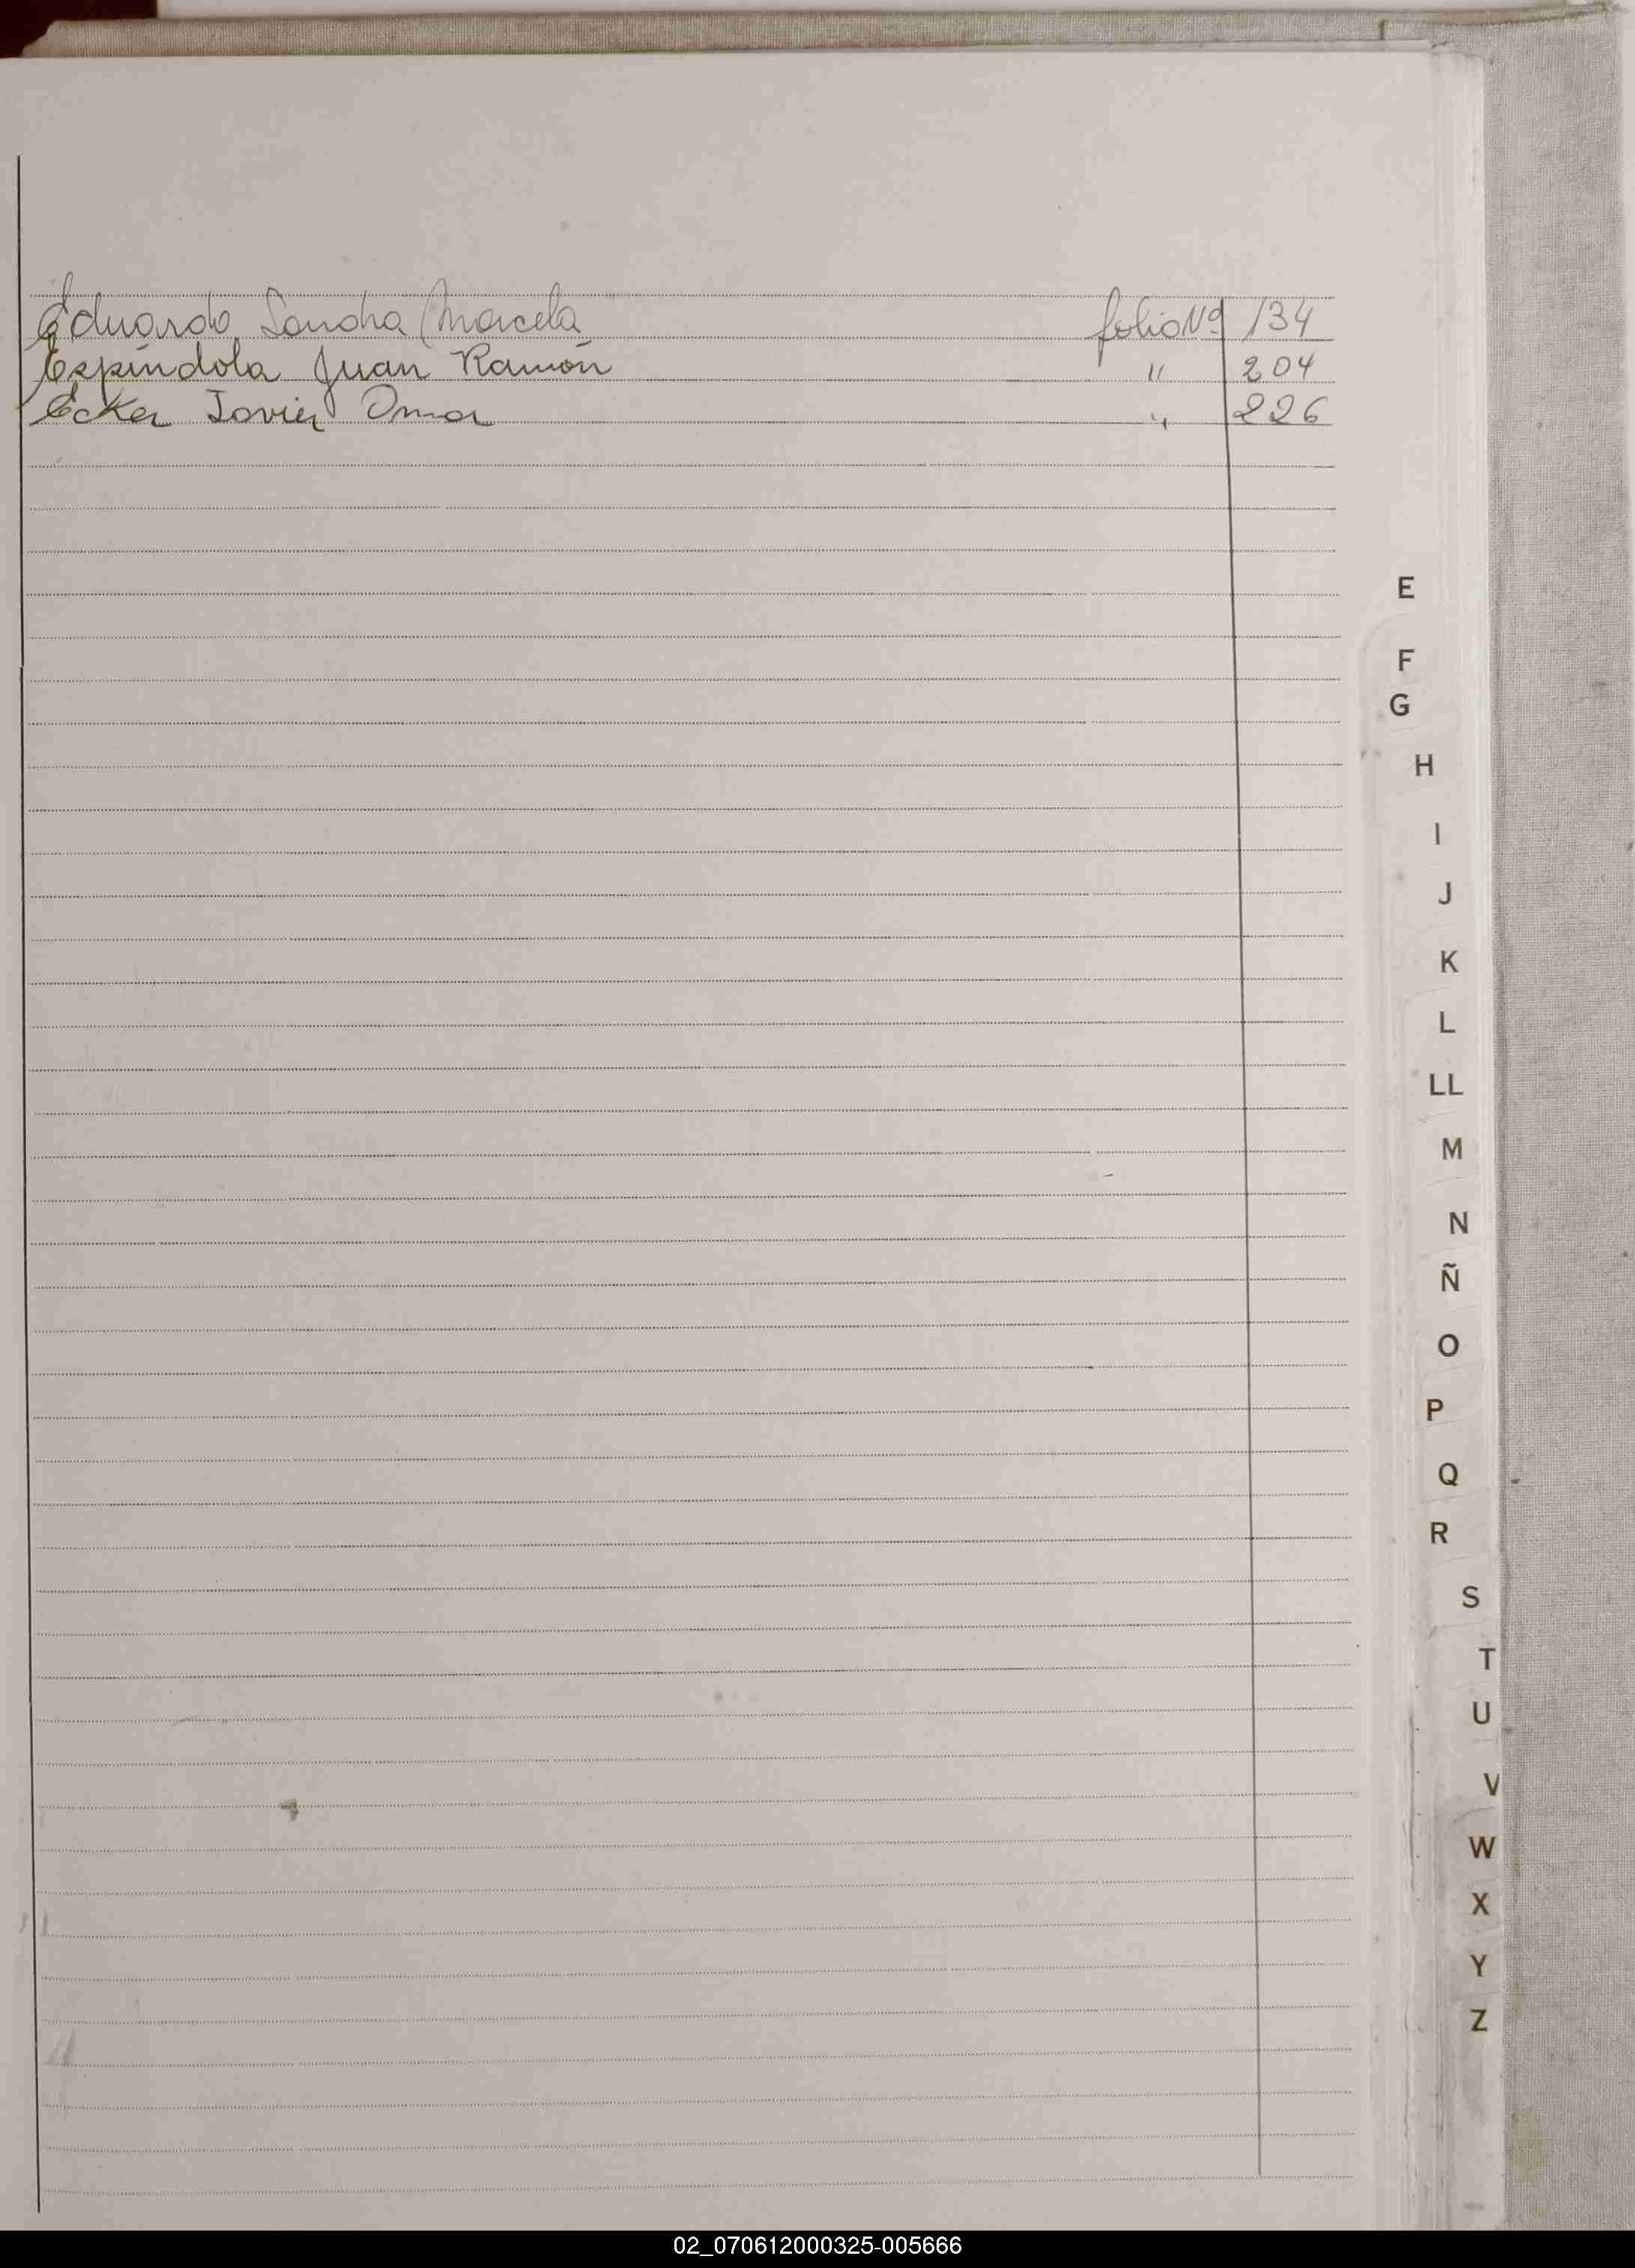 Eduardo Sandra Marcela folio Nº 134
Espíndola Juan Ramón " 204
Ecker Javier Omar " 226
E
F
G
H
I
J
K
L
LL
M
N
Ñ
O
P
Q
R
S
T
U
V
W
X
Y
Z
02_070612000325-005666